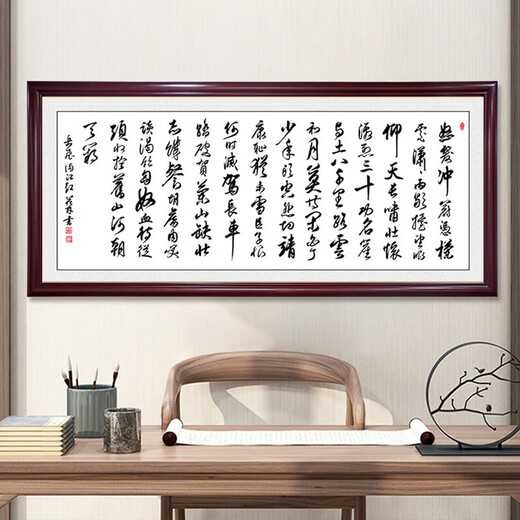 怒髮冲冠憑欄
處瀟瀟雨歇抬望眼
仰天長嘯壯懷
激烈三十功名塵
與土八千里路雲
和月莫等閑白了
少年頭空悲切靖
康恥猶未雪臣子恨
何時滅駕長車
踏破賀蘭山缺壯
志饑餐胡虜肉笑
談渴飲匈奴血待從
頭收拾舊山河朝
天闕
岳飛滿江紅